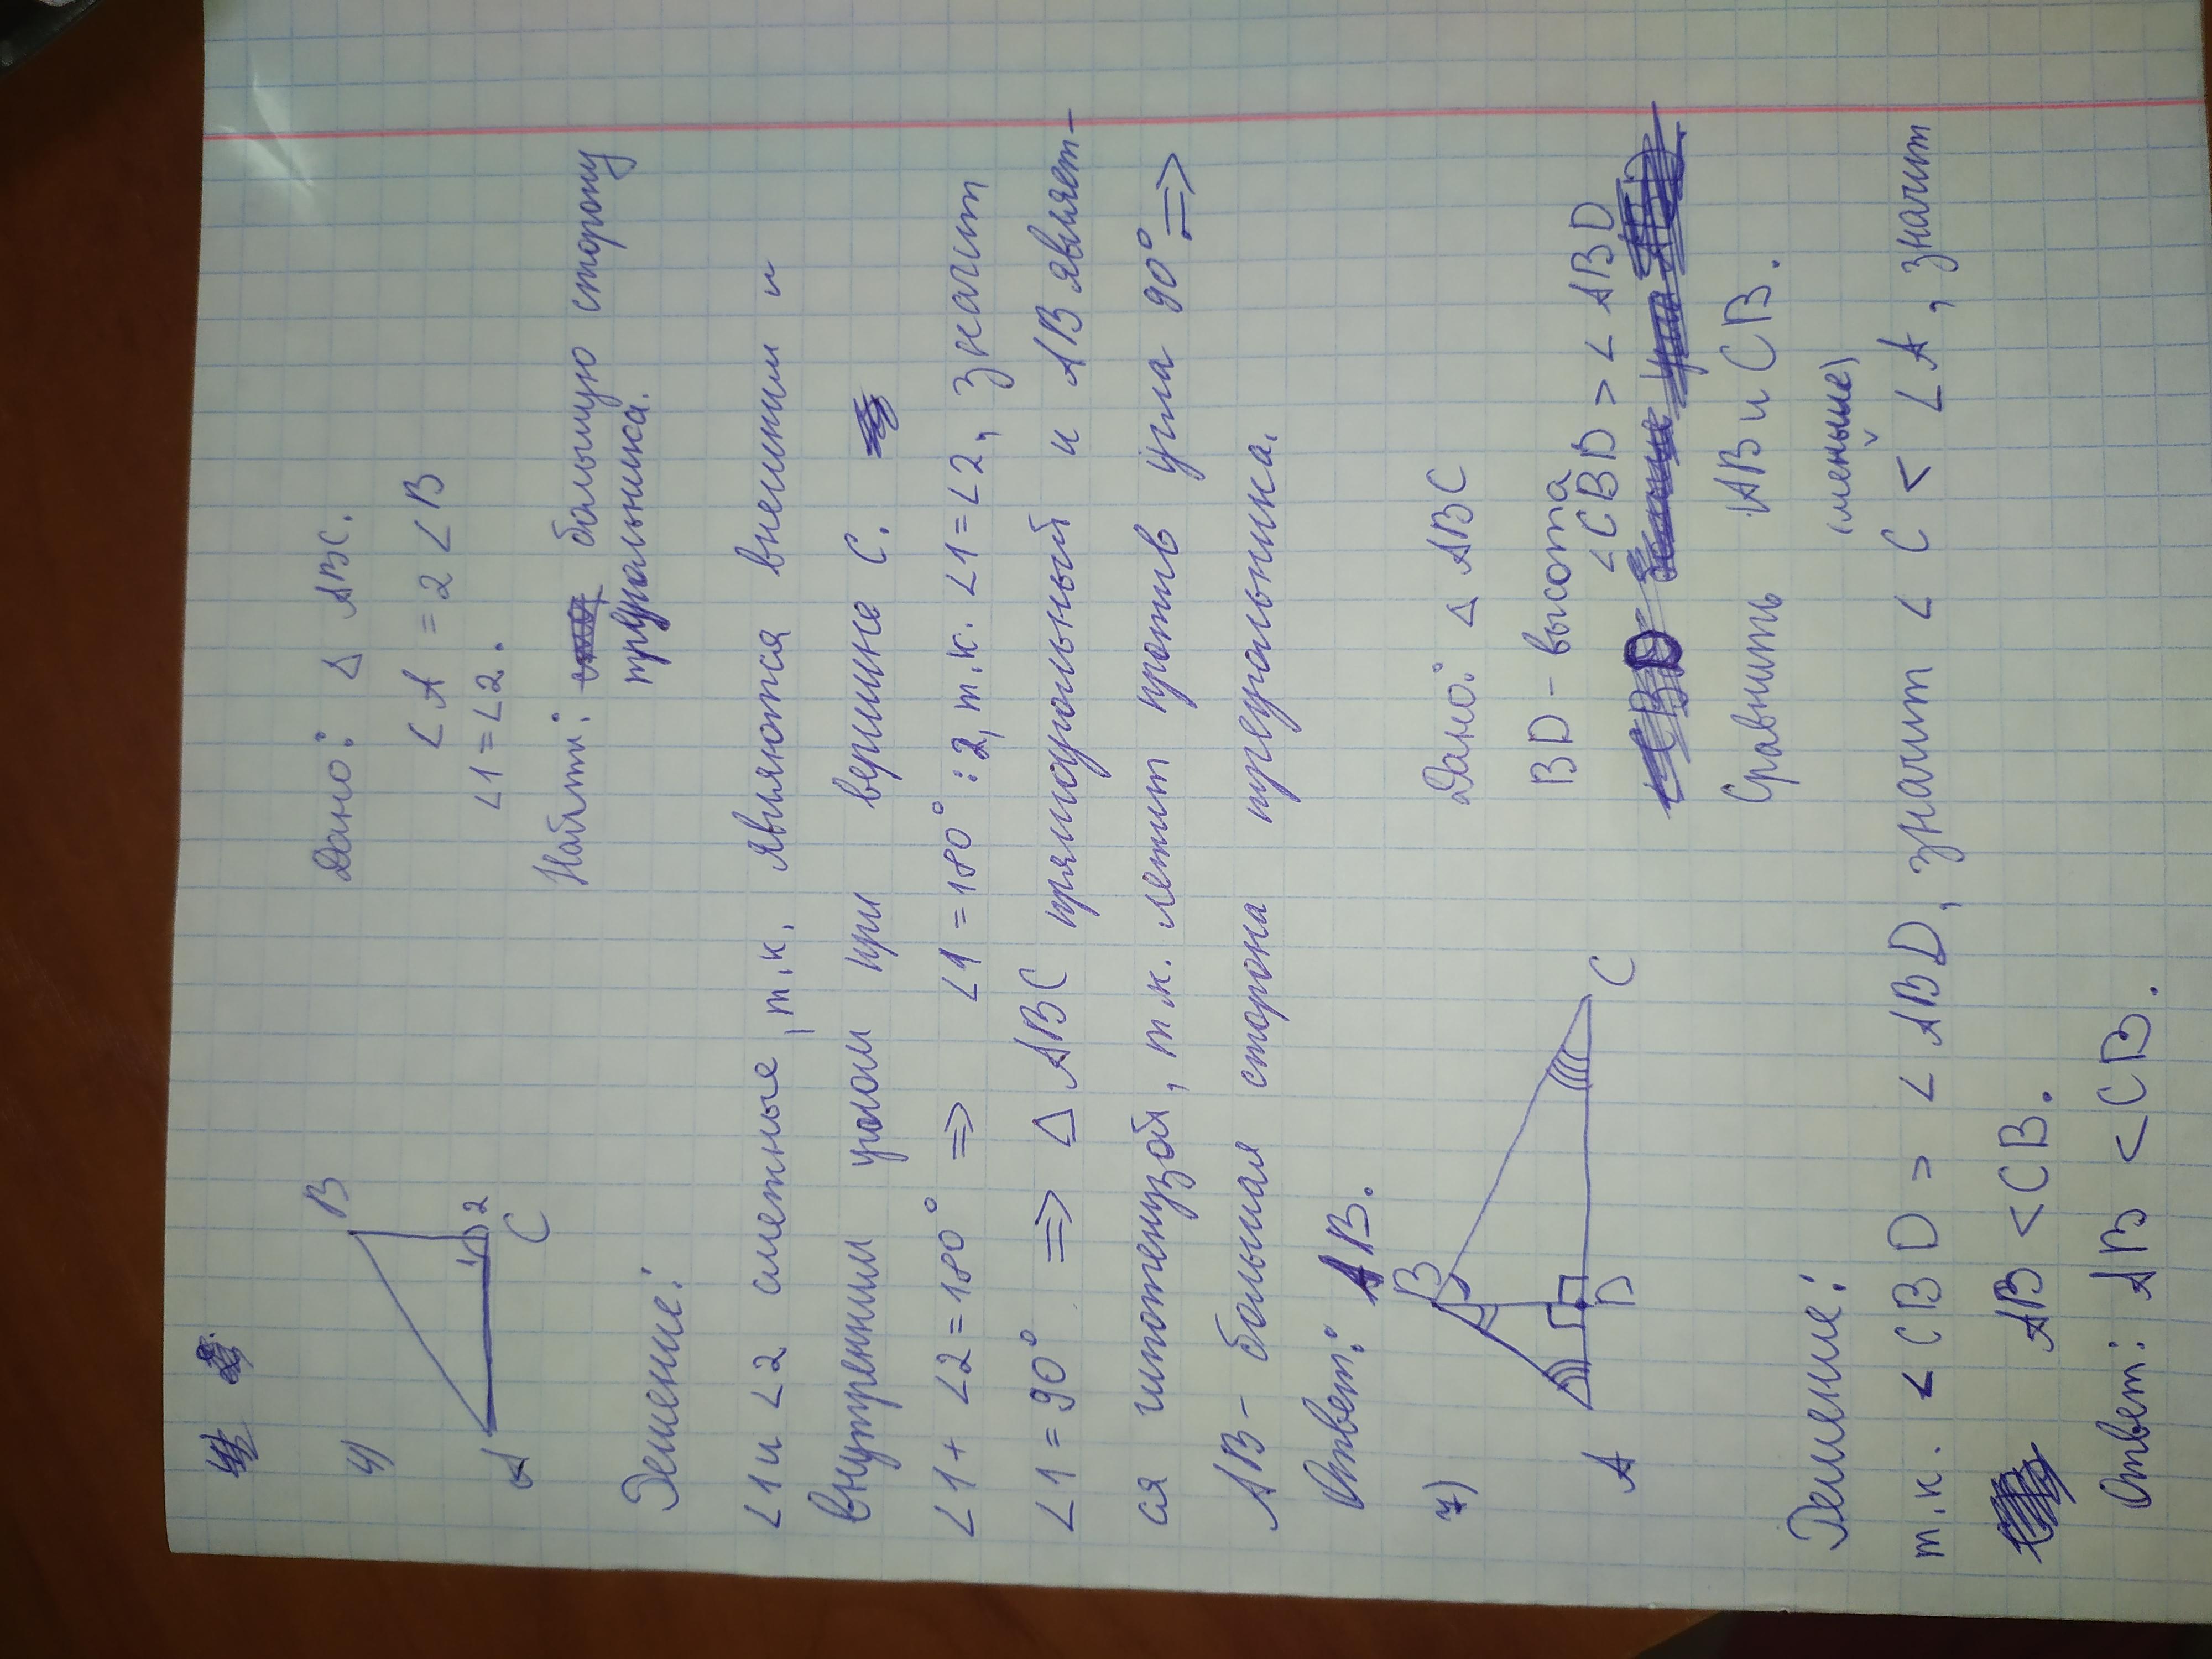 4)
B
A
1
2
C
Дано: Δ ABC.
∠A = 2∠B
∠1=∠2.
Найти: большую сторону
треугольника.
Решение:
∠1 и ∠2 смежные, т.к. являются внешним и
внутренним углом при вершине C.
∠1+∠2=180° => ∠1=180°:2, т.к. ∠1=∠2, значит
∠1=90° => Δ ABC прямоугольный и AB являет-
ся гипотенузой, т.к. лежит против угла 90° =>
AB - большая сторона треугольника.
Ответ: AB.
7)
B
A
D
C
Дано: Δ ABC
BD - высота
∠CBD > ∠ABD
Сравнить AB и CB.
Решение:
(меньше)
т.к. ∠CBD > ∠ABD, значит ∠C < ∠A, значит
AB < CB.
Ответ: AB < CB.